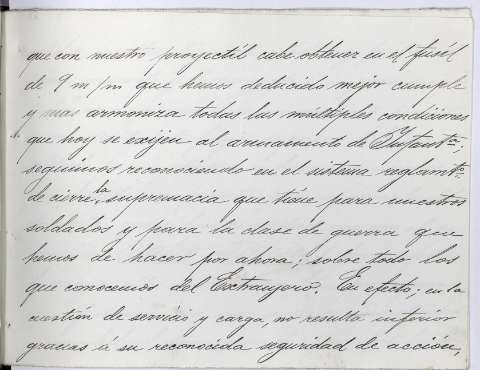 que con nuestro proyectil cabe obtener en el fusil
de 9 m/m que hemos deducido mejor cumple
y mas armoniza todas las múltiples condiciones
que hoy se exijen al armamento de Infantª;
seguimos reconociendo en el sistema reglamtº
de cierre, la supremacia que tiene para nuestros
soldados y para la clase de guerra que
hemos de hacer por ahora; sobre todo los
que conocemos del Extranjero. En efecto; en la
cuestión de servicio y carga, no resulta inferior
gracias á su reconocida seguridad de acción,